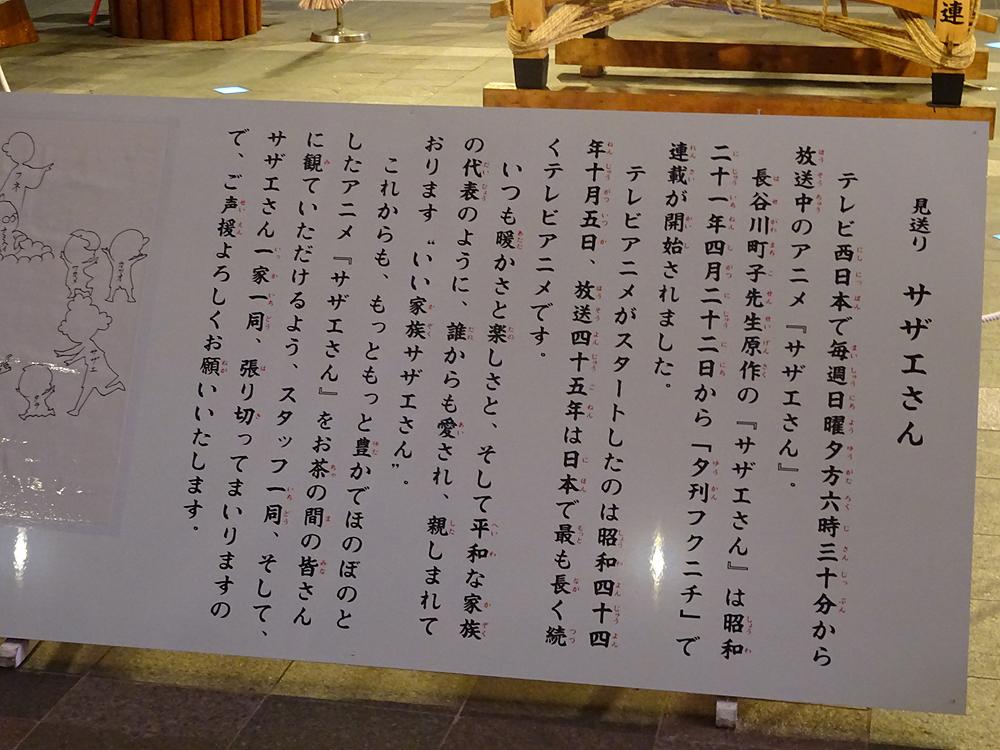 連
見送り サザエさん
テレビ西日本で毎週日曜夕方六時三十分から
放送中のアニメ『サザエさん』。
長谷川町子先生原作の『サザエさん』は昭和
二十一年四月二十二日から「夕刊フクニチ」で
連載が開始されました。
テレビアニメがスタートしたのは昭和四十四
年十月五日、放送四十五年は日本で最も長く続
くテレビアニメです。
いつも暖かさと楽しさと、そして平和な家族
の代表のように、誰からも愛され、親しまれて
おります“いい家族サザエさん。”
これからも、もっともっと豊かでほのぼのと
したアニメ『サザエさん』をお茶の間の皆さん
に観ていただけるよう、スタッフ一同、そして、
サザエさん一家一同、張り切ってまいりますの
で、ご声援よろしくお願いいたします。
フネ
サザエ